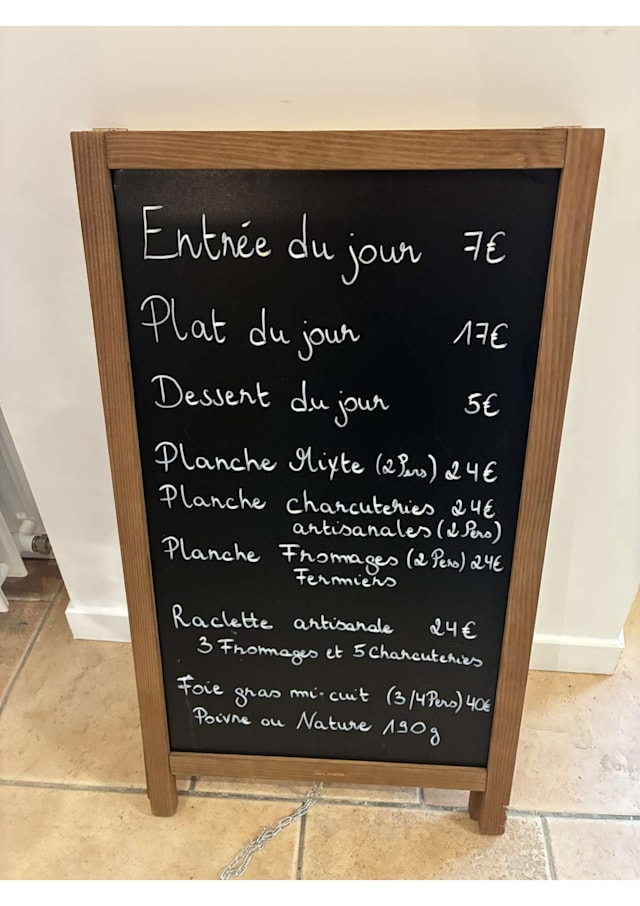 Entrée du jour 7€
Plat du jour 17€
Dessert du jour 5€
Planche Mixte (2 Pers) 24€
Planche charcuteries 24€
artisanales (2 Pers)
Planche Fromages (2 Pers) 24€
Fermiers
Raclette artisanale 24€
3 Fromages et 5 Charcuteries
Foie gras mi-cuit (3/4 Pers) 40€
Poivre ou Nature 190g